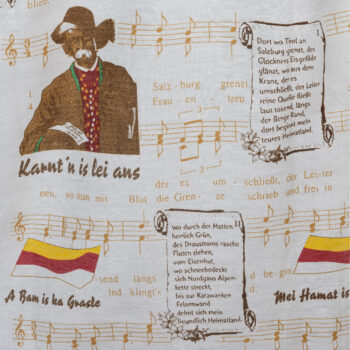 blieb
Dort wo Tirol an
Salzburg grenzt, des
Glockners Eisgefilde
glänzt, wo aus dem
Kranz, der es
umschließt, der Leiter
reine Quelle fließt
laut tosend, längs
der Berge Rand,
dort beginnt mein
teures Heimatland.
Salz - burg grenzt
Frau - en - treu
3
3
1
4
Karnt'n is lei ans
der es um - schließt, der Lei - ter
neu, wo man mit Blut die Gren - ze schrieb und frei in
Wo durch der Matten
herrlich Grün,
des Draustroms rasche
Fluten ziehen,
vom Eisenhut,
wo schneebedeckt
sich Nordgaus Alpen-
kette streckt,
bis zur Karawanken
Felsenwand
dehnt sich mein
freundlich Heimatland.
send längs
be gin
Ind klingt's
A Bam is ka Gnastle
Mei Hamat is